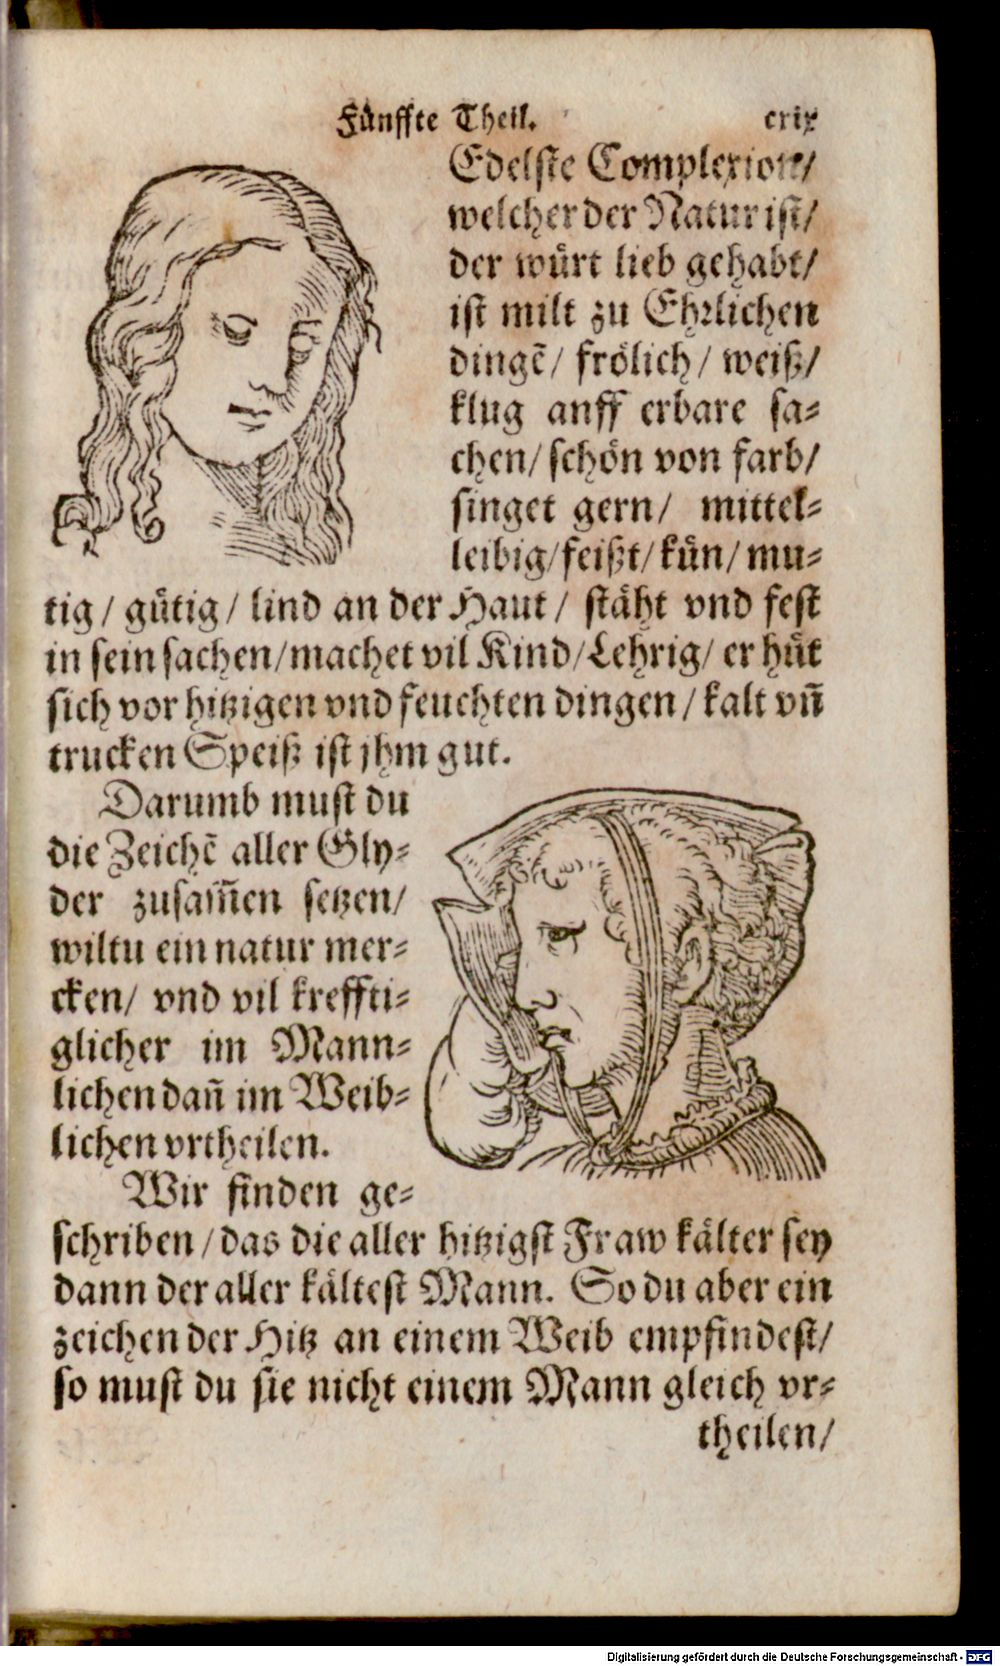 Fünffte Theil. cxix
Edelste Complexion/
welcher der Natur ist/
der würt lieb gehabt/
ist milt zu Ehrlichen
dingẽ/ frölich/ weiß/
klug anff erbare sa⸗
chen/ schön von farb/
singet gern/ mittel⸗
leibig/feißt/kün/ mu⸗
tig/ gütig/ lind an der Haut/ stäht vnd fest
in sein sachen/machet vil Kind/Lehrig/ er hüt
sich vor hitzigen vnd feuchten dingen/ kalt vñ
trucken Speiß ist jhm gut.
Darumb must du
die Zeichẽ aller Gly⸗
der zusam̃en setzen/
wiltu ein natur mer⸗
cken/ vnd vil kreffti⸗
glicher im Mann⸗
lichen dañ im Weib⸗
lichen vrtheilen.
Wir finden ge⸗
schriben/das die aller hitzigst Fraw kälter sey
dann der aller kältest Mann. So du aber ein
zeichen der Hitz an einem Weib empfindest/
so must du sie nicht einem Mann gleich vr⸗
theilen/
Digitalisierung gefördert durch die Deutsche Forschungsgemeinschaft - DFG